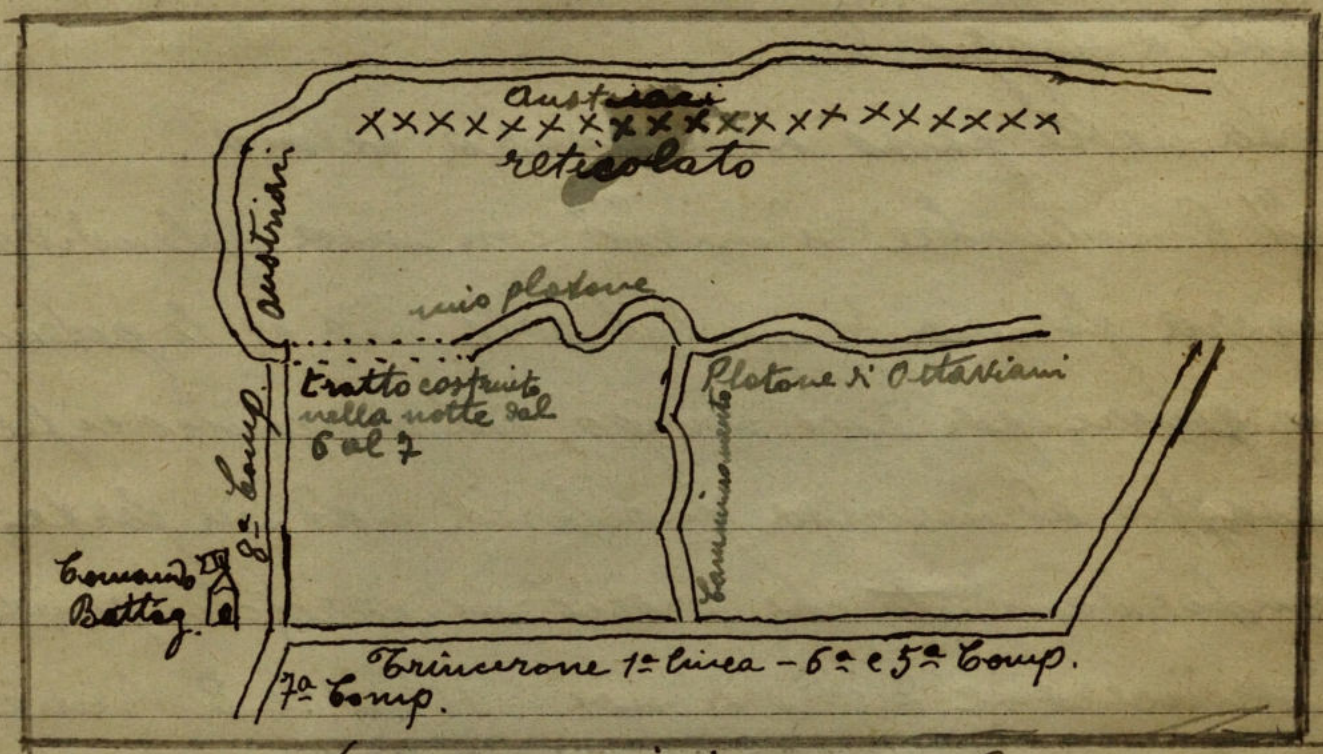 austriaci
XXXXXXXXXXXXXXXXXXX
reticolato
austriaci
mio plotone
tratto costruito
nella notte dal
6 al 7
Plotone di Ottaviani
Camminamento
8ª Comp.
Comando
Battag.
Trincerone 1ª linea - 6ª e 5ª Comp.
7ª Comp.